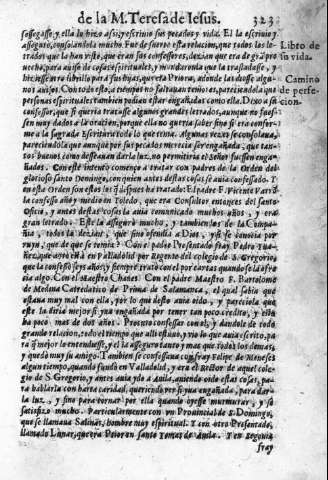 de la M. Teresa de Iesus. 323
sossegasse, y ella lo hizo assi, y escriuio sus pecados y vida. El la escriuio y
asseguro, consolandola mucho. Fue de suerte esta relacion, que todos los le-
trados que la han visto, que eran sus confessores, dezian que era de gran pro
uecho, para auiso de cosas espirituales, y mandaronla que la trasladasse, y
hiziesse otro librillo para sus hijas, que era Priora, adonde las diesse algu-
nos auisos. Con todo esto, a tiempos no faltauan temores, pareciendola que
personas espirituales tambien podian estar engañadas como ella. Dixo a su
confessor, que si queria tratasse algunos grandes letrados, aunque no fues-
sen muy dados a la oracion, porque ella no queria saber sino si era confor-
me a la sagrada Escritura todo lo que tenia. Algunas vezes se consolaua,
pareciendola que aunque por sus pecados merecia ser engañada, que tan-
tos buenos como desseauan darla luz, no permitiria el Señor fuessen enga-
ñados. Con este intento començo a tratar con padres de la Orden del
glorioso santo Domingo, con quien antes destas cosas se auia confessado. Y
en esta Orden son estos los q̃ despues ha tratado: El padre F. Vicente Varrõ
la confesso año y medio en Toledo, que era Consultor entonces del santo
Oficio, y antes destas cosas la auia comunicado muchos años, y era
gran letrado. Este la asseguro mucho, y tambien los de la Compa-
ñia, todos la dezian, que sino ofendia a Dios, y si se conocia por
ruyn, que de que se temia? Con el padre Presentado fray Pedro Yua-
ñez, que aora està en Valladolid por Regente del colegio de S. Gregorio,
que la confessò seys años, y siempre trato con el por cartas quando se la ofre
cia algo. Con el Maestro Chaues. Con el padre Maestro F. Bartolome
de Medina Catredatico de Prima de Salamanca, el qual sabia que
estaua muy mal con ella, por lo que desto auia oido, y pareciola que
este la diria mejor si yua engañada por tener tan poco credito, y esto
ha poco mas de dos años. Procuro confessar con el, y dandole de todo
grande relacion, todo el tiempo que alli estuuo, y vio lo que auia escrito, pa
ra q̃ mejor lo entendiesse, y el la asseguro tanto y mas que todos los demas,
y quedo muy su amigo. Tambien se confessaua con fray Felipe de Meneses
algun tiempo, quando fundò en Valladolid, y era el Retor de aquel cole-
gio de S. Gregorio, y antes auia ydo a Auila, auiendo oido estas cosas, pa
ra hablarla con harta caridad, queriendo ver si yua engañada, para dar-
la luz, y sino para tornar por ella quando oyesse murmurar, y se
satisfizo mucho. Particularmente con vn Prouincial de S. Domingo,
que se llamaua Salinas, hombre muy espiritual. Y con otro Presentado,
llamado Lunar, que era Prior en santo Tomas de Auila. Y en Segouia
fray
Libro de
su vida.
Camino
de perfe-
cion.